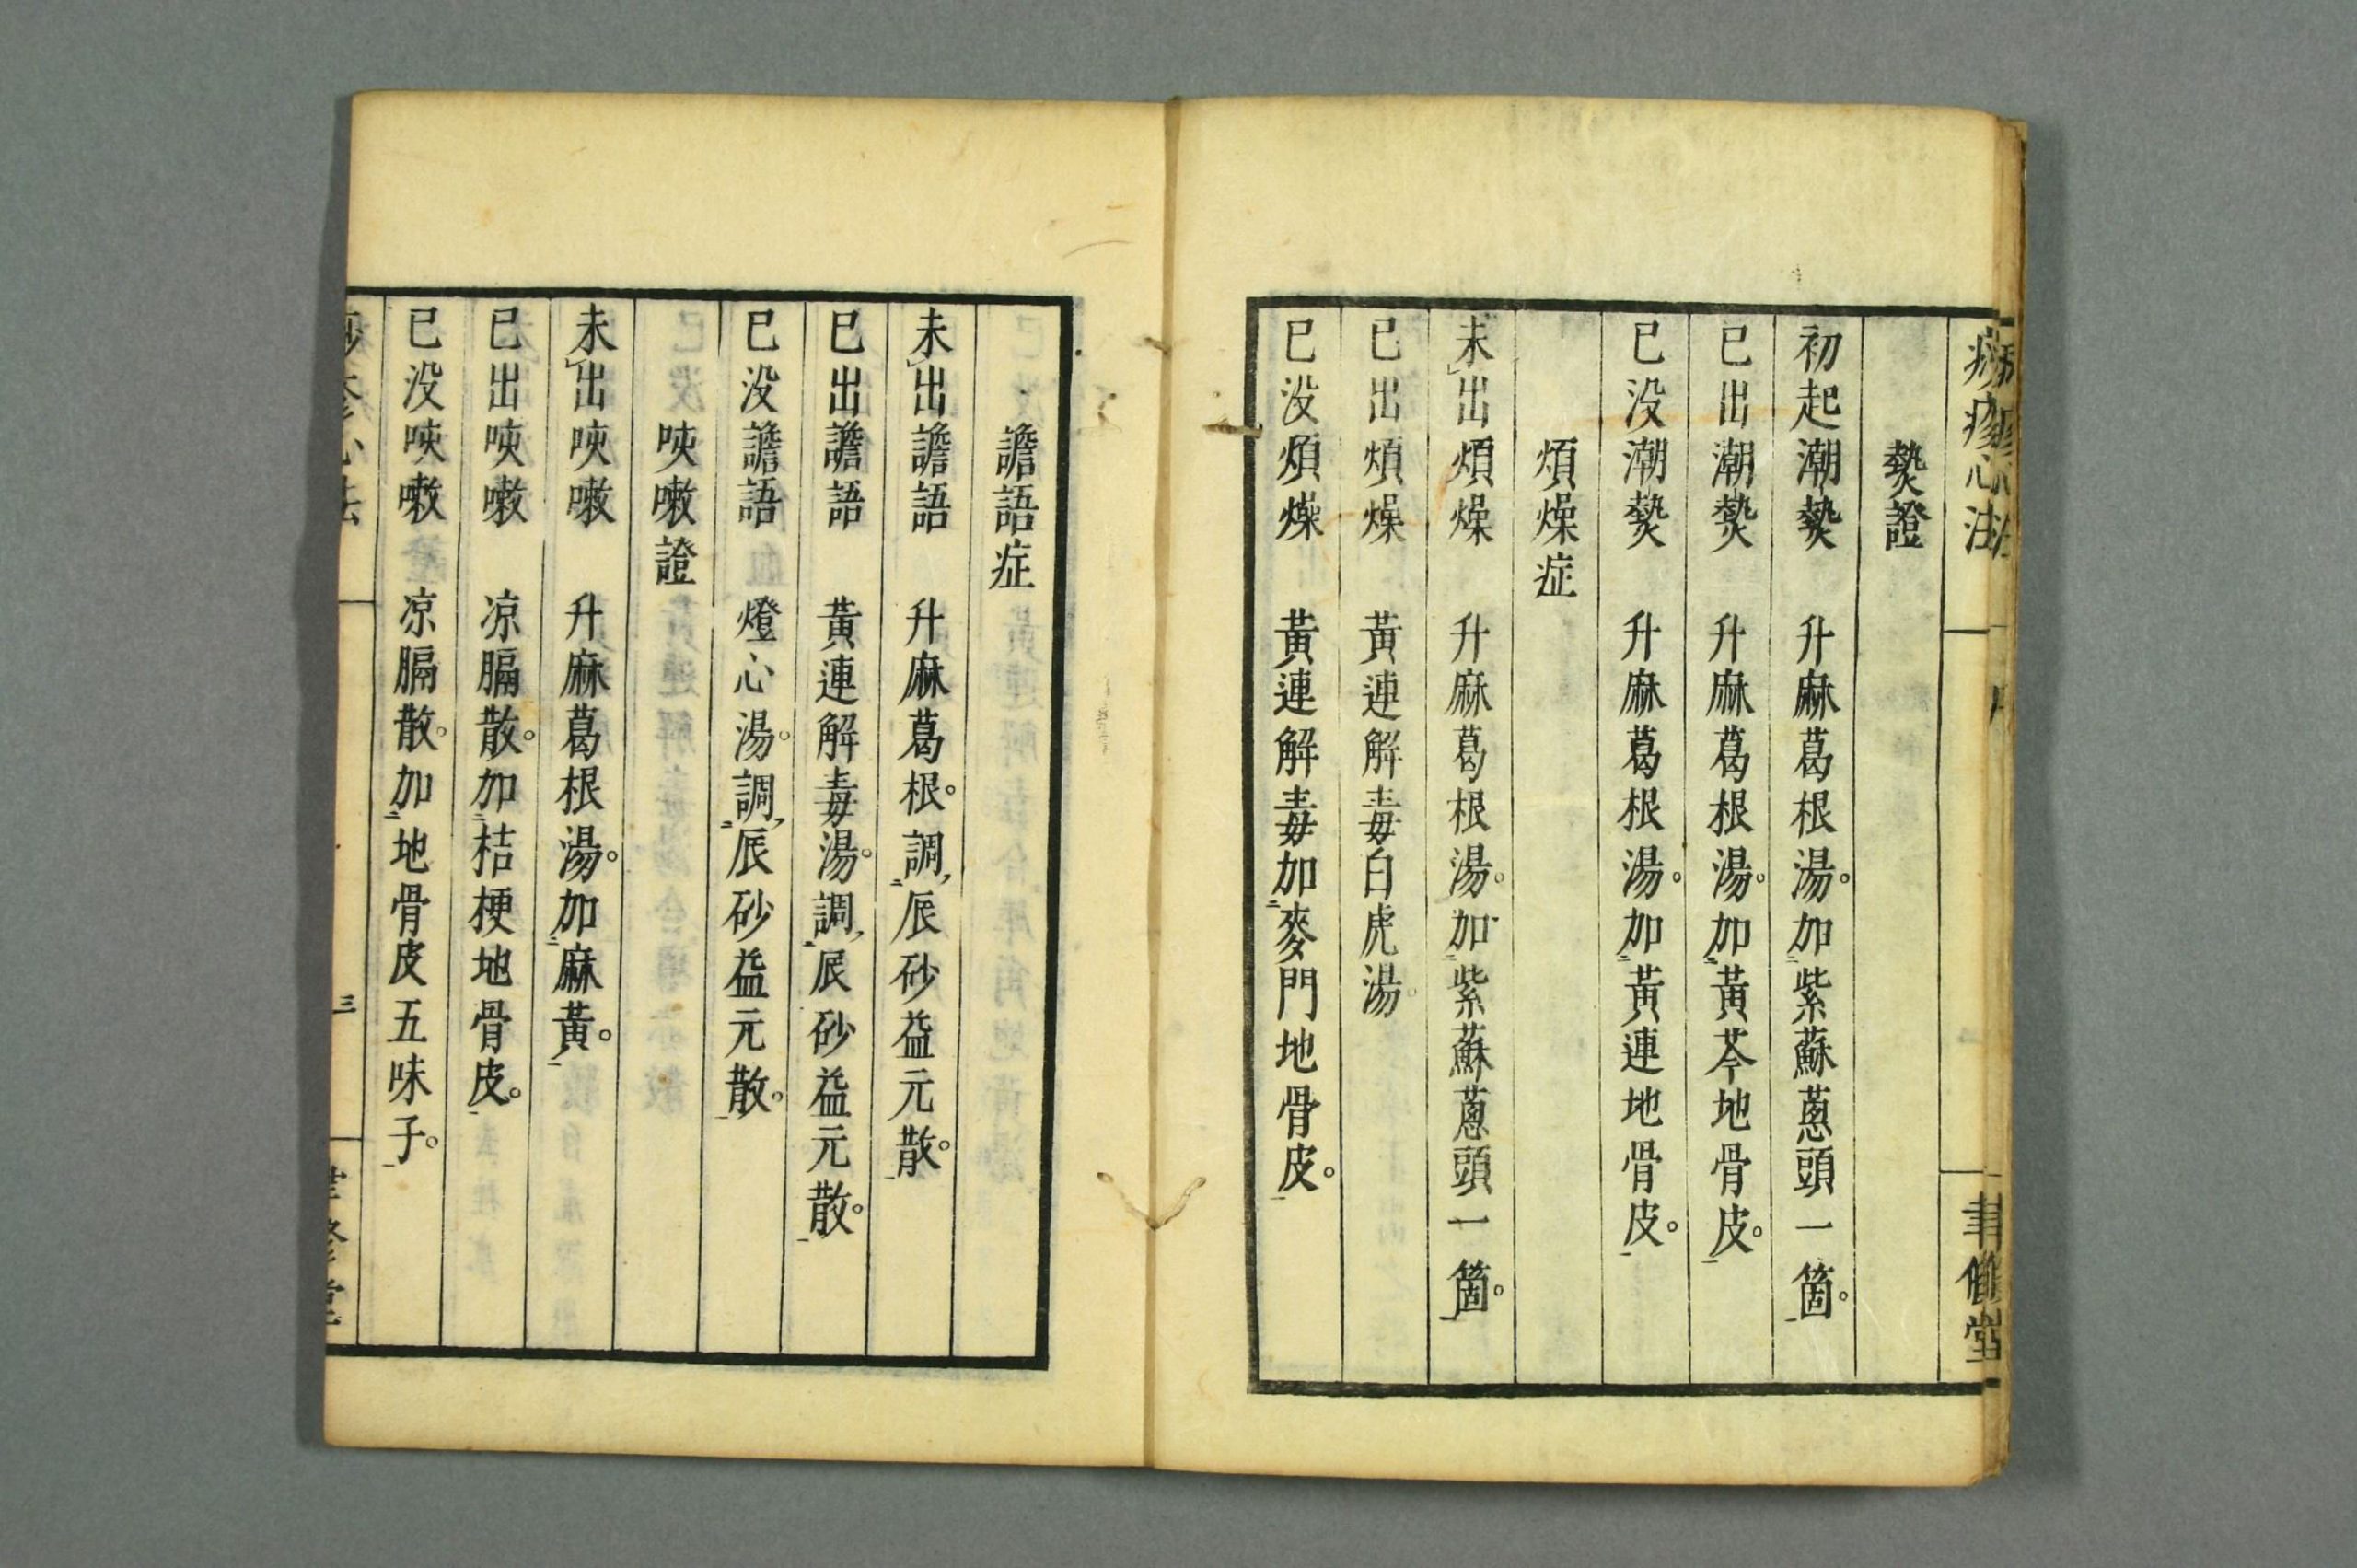 痧疹心法
聿修堂
熱證
初起潮熱　升麻葛根湯。加紫蘇蔥頭一箇。
已出潮熱　升麻葛根湯。加黃芩地骨皮。
已没潮熱　升麻葛根湯。加黃連地骨皮。
煩燥症
未出煩燥　升麻葛根湯。加紫蘇蔥頭一箇。
已出煩燥　黃連解毒白虎湯。
已没煩燥　黃連解毒加麥門地骨皮。
譫語症
未出譫語　升麻葛根。調辰砂益元散。
已出譫語　黃連解毒湯。調辰砂益元散。
已没譫語　燈心湯。調辰砂益元散。
咳嗽證
未出咳嗽　升麻葛根湯。加麻黃。
已出咳嗽　凉膈散。加桔梗地骨皮。
已没咳嗽　凉膈散。加地骨皮五味子。
三